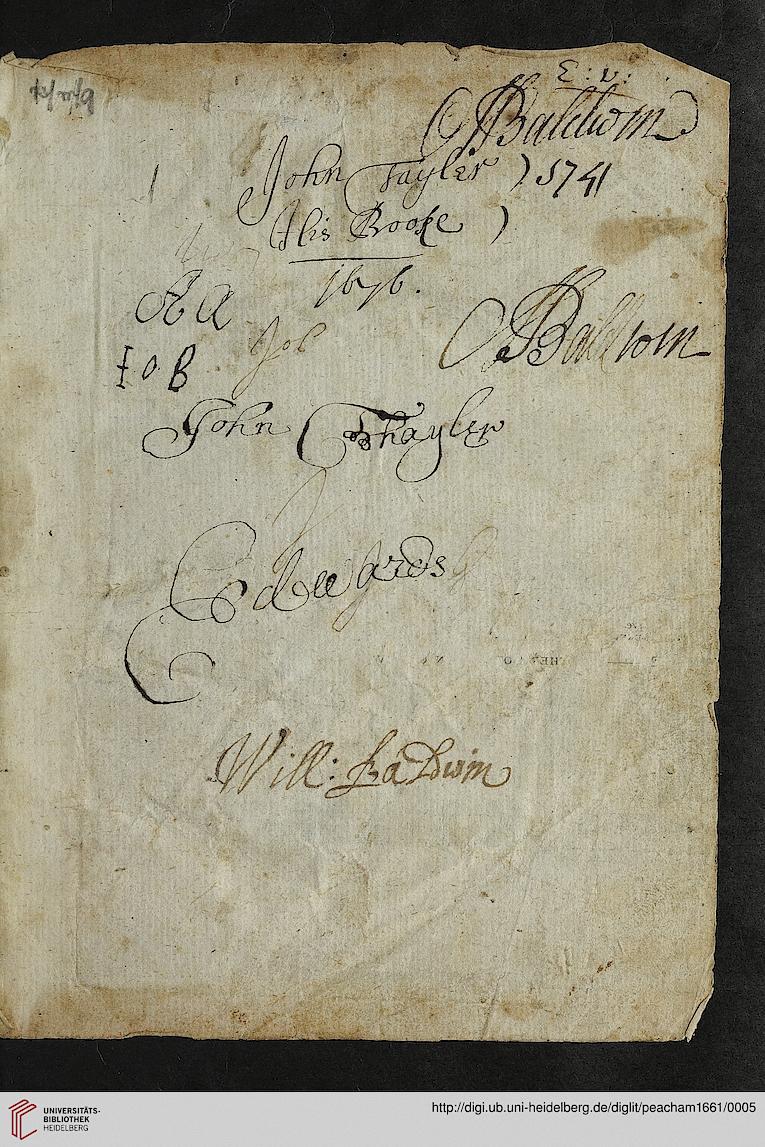 Σ : υ :
Baldwin
John Tayler ) 1741
His Booke )
1676.
A a
Job
Baldwin
I o B
John Thayler
Edwards
Will: Baldwin
UNIVERSITÄTS-
BIBLIOTHEK
HEIDELBERG
http://digi.ub.uni-heidelberg.de/diglit/peacham1661/0005